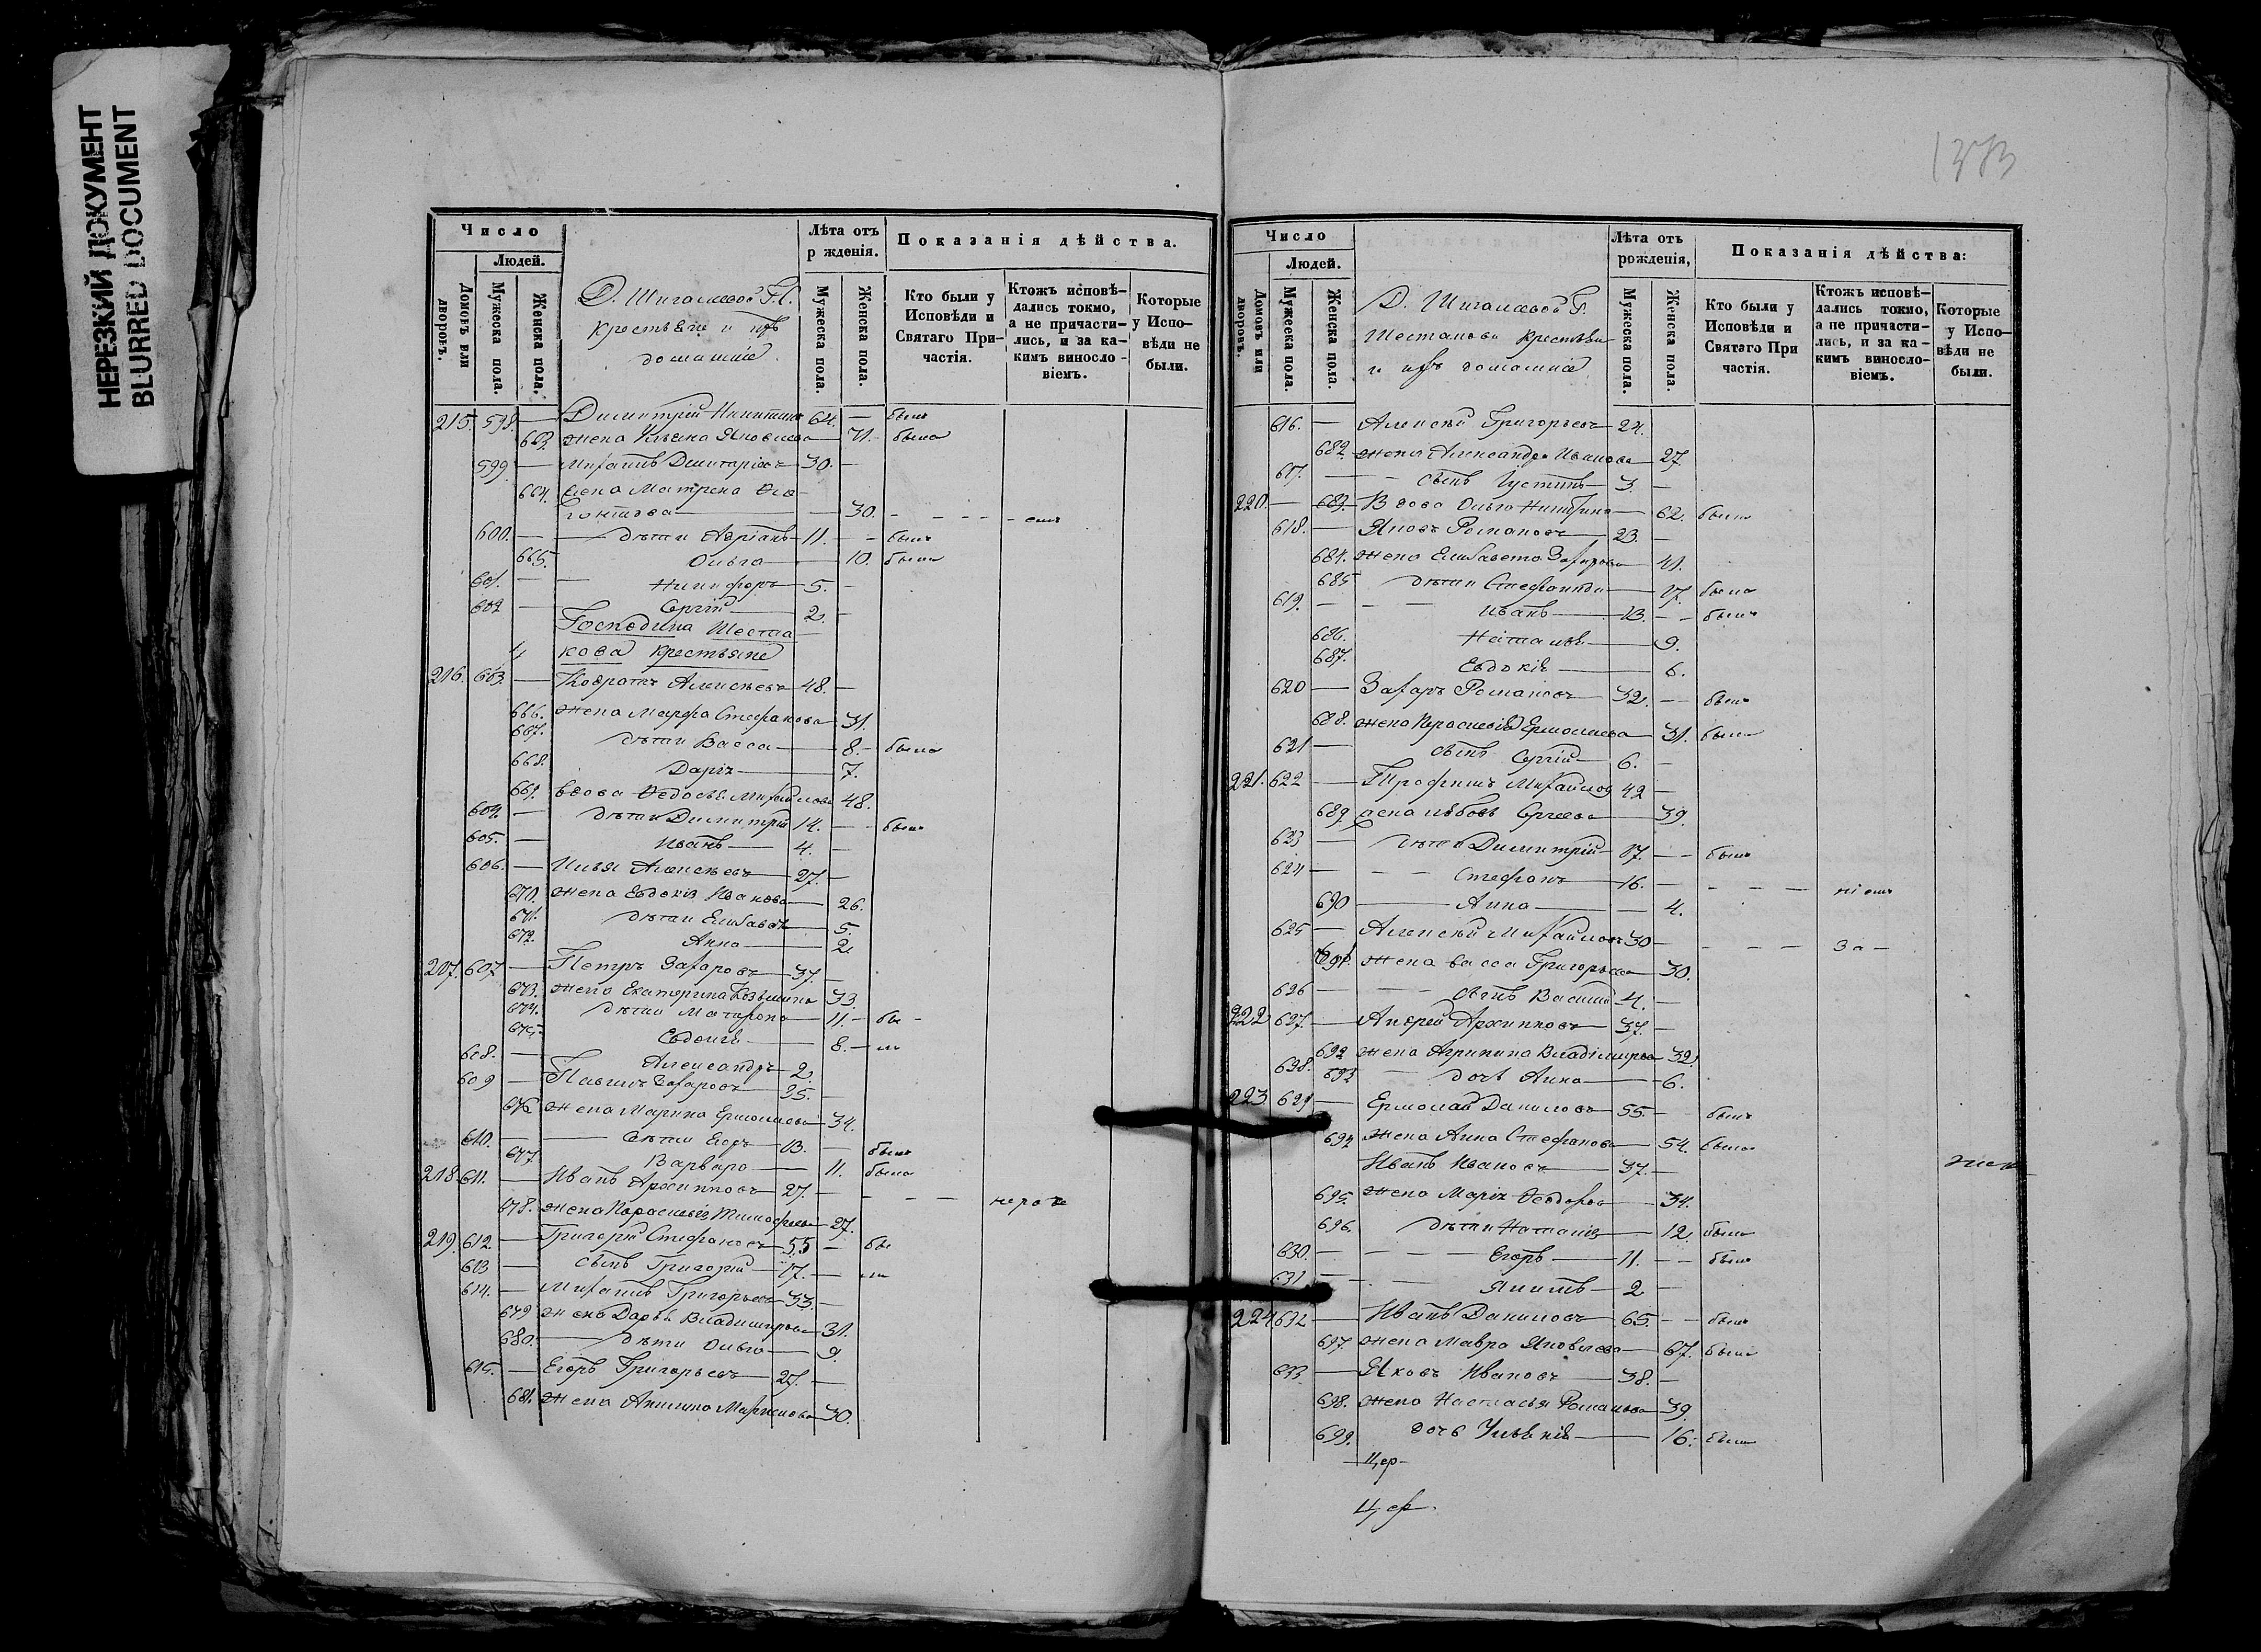 НЕРЕЗКИЙ ДОКУМЕНТ
BLURRED DOCUMENT
Число
Людей.
Домовъ или дворовъ.
Мужеска пола.
Женска пола.
Д. Шигалевой Г.
крестьяне и ихъ
домашніе.
Лѣта отъ
р жденія.
Мужеска пола.
Женска пола.
Показанія дѣйства.
Кто были у
Исповѣди и
Святаго При-
частія.
Ктожъ исповѣ-
дались токмо,
а не причасти-
лись, и за ка-
кимъ винносло-
віемъ.
Которые
у Испо-
вѣди не
были.
215. 598. — Димитрій Никитинъ 64. — былъ
663. жена Ульяна Яковлева — 71. была
599 — Михаилъ Димитріевъ — 30. —
664. жена Матрена
— 30. - - - -
600. — дѣти Адріанъ — 11. - - былъ
665. Ольга — 10. была
601. — Никифоръ — 5. -
602 — Сергій — 2. -
Господина Шеста
кова крестьяне
216. 603. — Кодратъ Алексѣевъ — 48. —
666. жена Марфа Стефанова 31.
667. дѣти Васса — 8. - была
668. Дарія — 7.
669. вдова Федосья Михайлова 48.
604. — дѣти Димитрій 14. — былъ
605. — Иванъ — 4. —
606. — Илья Алексѣевъ — 27. —
670. жена Евдокія Иванова — 26.
671. дѣти Елисавета 5.
672. Анна — 2
207. 607 — Петръ Захаровъ — 37. —
673. жена Екатерина Козьмина 33
674. дѣти Матрона — 11. - бы -
675. Евдокія — 8. — ли
608. — Александръ — 2.
609 — Павелъ Захаровъ — 35. —
676 жена Марина Ермолаева 34.
610. — дѣти Егоръ — 13. — былъ
677. Варвара — 11. была
218. 611. — Иванъ Архиповъ — 27. — - - -
678. жена Параскевія Тимофеева 27.
219. 612. — Григорій Стефановъ — 55 — бы
613 — сынъ Григорій — 17. — ли
614. — Михаилъ Григорьевъ — 33. —
679 жена Дарья Владимирова 31.
680. — дѣти Ольга — 9.
615. — Егоръ Григорьевъ — 27. —
681. жена Акилина Маркелова 30.
1373
Число
Людей.
Домовъ или дворовъ.
Мужеска пола.
Женска пола.
Д. Шигалевой Г.
Шестакова крестьяне
и ихъ домашніе
Лѣта отъ
рожденія,
Мужеска пола.
Женска пола.
Показанія дѣйства:
Кто были у
Исповѣди и
Святаго При
частія.
Ктожъ исповѣ-
дались токмо,
а не причасти-
лись, и за ка-
кимъ винносло-
віемъ.
Которые
у Испо-
вѣди не
были.
616. — Алексѣй Григорьевъ — 24.
682. жена Александра Иванова 27
617. — сынъ Іустинъ — 3. —
220. — 683. Вдова Ольга Никитина — 62. была
618. — Яковъ Романовъ — 23. —
684. жена Елисавета Захарова 41.
685 дѣти Стефанида — 17. была
619. - - - Иванъ — 13. - - былъ
686. Наталья — 9.
687. Евдокія — 6.
620 — Захаръ Романовъ — 32. - - былъ
688. жена Параскевія Ермолаева 31. была
621 — сынъ Сергій — 6. —
221. 622 — Трофимъ Михайловъ 42 —
689. жена Любовь Сергеева 39.
623 — дѣти Димитрій — 17. - - былъ
624 — - - Стефанъ — 16. - - - -
690 — Анна — 4.
625 — Алексѣй Михайловъ 30 - - - - За -
691. жена Васса Григорьева 30.
626 — - - сынъ Василій — 4. —
222 627. — Андрей Архиповъ — 37. —
692 жена Агрипина Владимирова 32.
628. 693 — дочь Анна — 6.
223 629 — Ермолай Даниловъ — 55. — былъ
694 жена Анна Стефанова — 54. была
Иванъ Ивановъ — 37. —
695. жена Марія Федорова — 34.
696. дѣти Наталія — 12. была
630. - - - - Егоръ — 11. - - былъ
631 — - Якимъ — 2 —
224 632 — Иванъ Даниловъ — 65. - - былъ
697. жена Мавра Яковлева — 67. была
633 — Яковъ Ивановъ — 38. —
698. жена Настасья Романова 39.
699. дочь Ульянія — 16. была